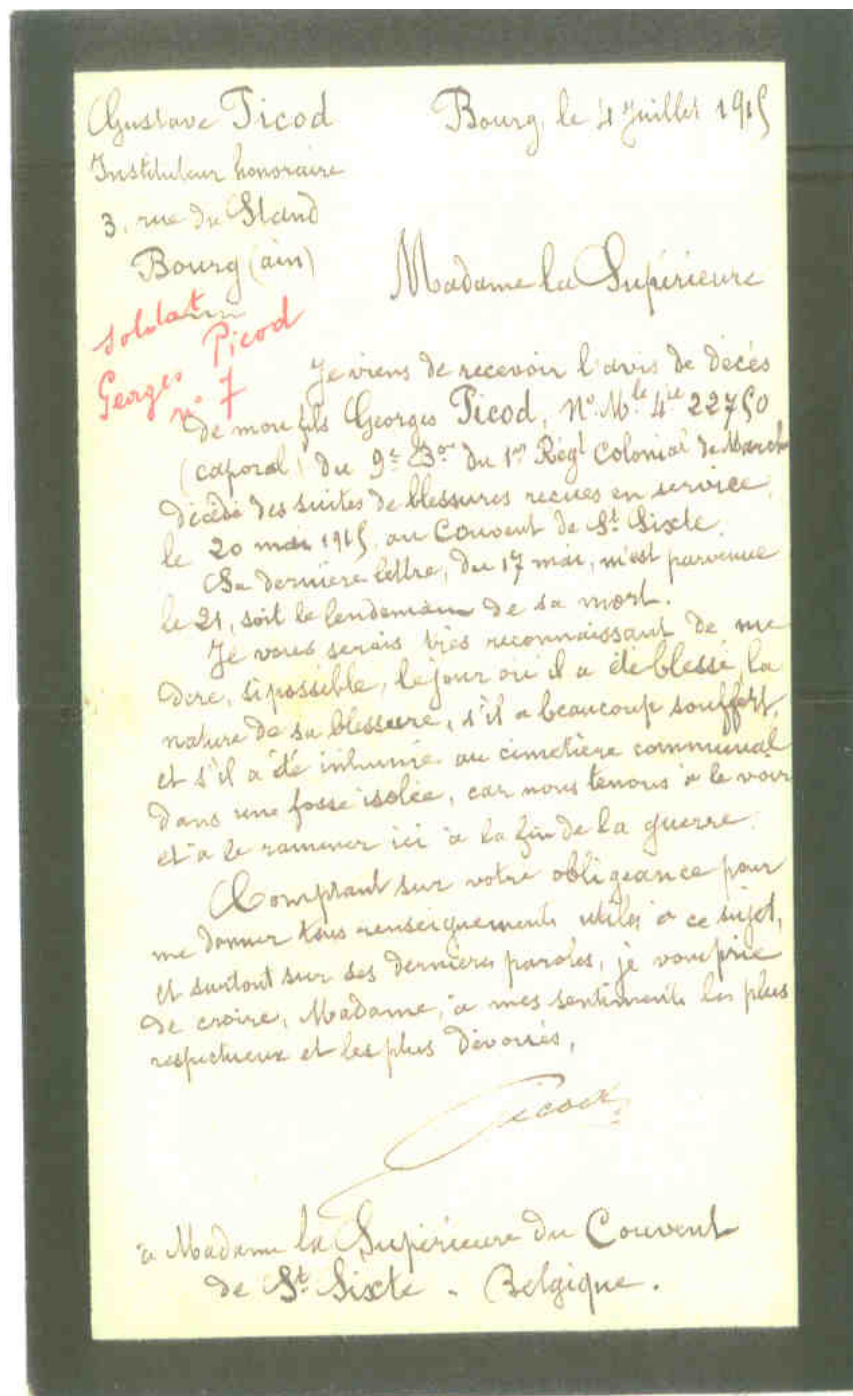 Gustave Picod
Bourg, le 4 Juillet 1915
Instituteur honoraire
3, rue du Stand
Bourg (ain)
Madame la Supérieure
Soldat
Georges Picod
n° 7
Je viens de recevoir l'avis de décès
de mon fils Georges Picod, N° Mle 4ie 22750
(caporal) du 9e Bon du 1er Régt Colonial de March
décédé des suites de blessures reçues en service,
le 20 mai 1915, au Couvent de St Sixte.
Sa dernière lettre, du 17 mai, m'est parvenue
le 21, soit le lendemain de sa mort.
Je vous serais très reconnaissant de me
dire, si possible, le jour où il a été blessé, la
nature de sa blessure, s'il a beaucoup souffert,
et s'il a été inhumé au cimetière communal
dans une fosse isolée, car nous tenons à le voir
et à le ramener ici à la fin de la guerre.
Comptant sur votre obligeance pour
me donner tous renseignements utiles à ce sujet,
et surtout sur ses dernières paroles, je vous prie
de croire, Madame, à mes sentiments les plus
respectueux et les plus dévoués,
Picod
à Madame la Supérieure du Couvent
de St Sixte - Belgique.